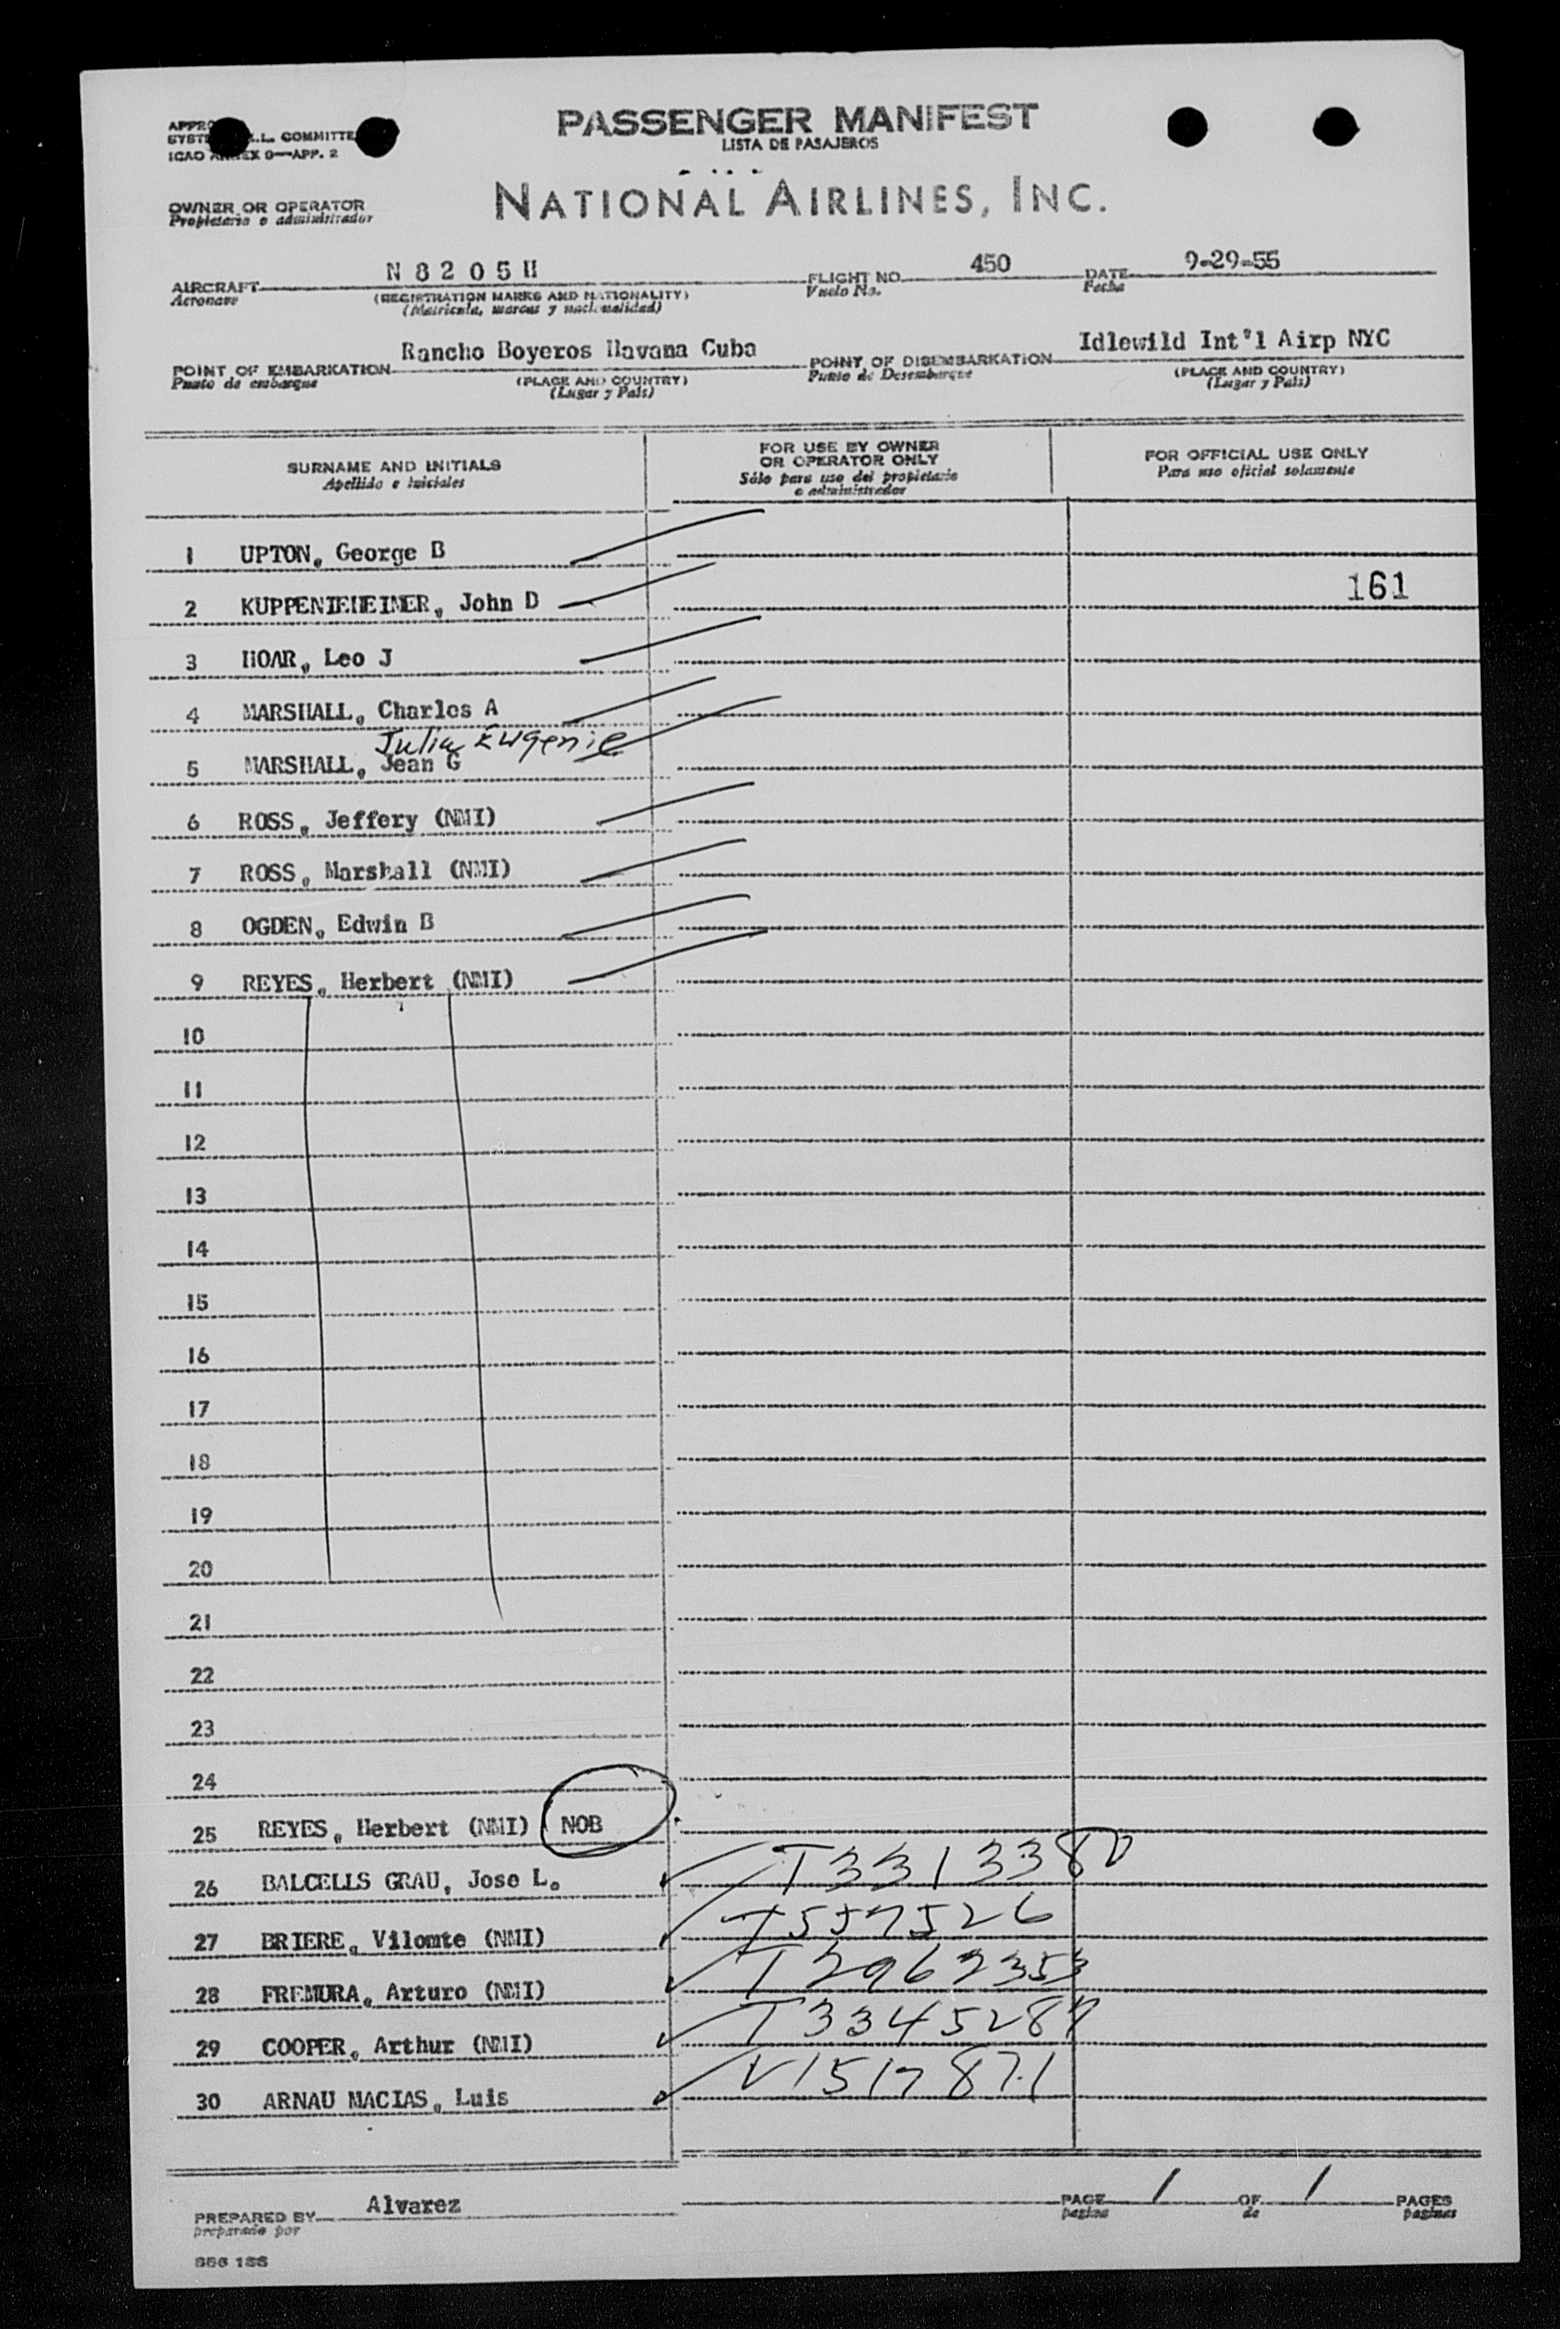 PASSENGER MANIFEST
LISTA DE PASAJEROS
L. COMMITTE
ICAO ANNEX 9—APP. 2
OWNER OR OPERATOR
Propietario o administrador
NATIONAL AIRLINES, INC.
AIRCRAFT N 8 2 0 5 H FLIGHT NO. 450 DATE 9-29-55
Aeronave (REGISTRATION MARKS AND NATIONALITY) Vuelo No. Fecha
(Matricula, marcas y nacionalidad)
POINT OF EMBARKATION Rancho Boyeros Havana Cuba POINT OF DISEMBARKATION Idlewild Int'l Airp NYC
Punto de embarque (PLACE AND COUNTRY) Punto de Desembarque (PLACE AND COUNTRY)
(Lugar y Pais) (Lugar y Pais)
SURNAME AND INITIALS
Apellido e iniciales
FOR USE BY OWNER
OR OPERATOR ONLY
Sólo para uso del propietario
o administrador
FOR OFFICIAL USE ONLY
Para uso oficial solamente
1 UPTON, George B
2 KUPPENHEIMER, John D 161
3 HOAR, Leo J
4 MARSHALL, Charles A
Julia Eugenie
5 MARSHALL, Jean G
6 ROSS, Jeffery (NMI)
7 ROSS, Marshall (NMI)
8 OGDEN, Edwin B
9 REYES, Herbert (NMI)
10
11
12
13
14
15
16
17
18
19
20
21
22
23
24
25 REYES, Herbert (NMI) NOB
26 BALCELLS GRAU, Jose L. T3313380
27 BRIERE, Vilomte (NMI) T557526
28 FREMURA, Arturo (NMI) T2962353
29 COOPER, Arthur (NMI) T3345287
30 ARNAU MACIAS, Luis V1517871
PREPARED BY Alvarez PAGE 1 OF 1 PAGES
preparado por pagina de paginas